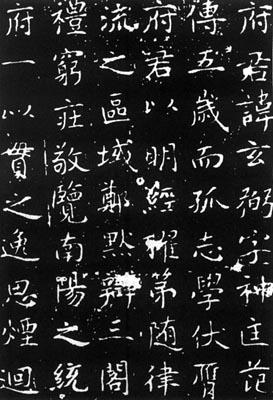 府君諱玄弼字神匡范
傳五歲而孤志學伏膺
府君以明經擢第随律
流之區域鄭默辯三閣
禮窮莊敬覽南陽之統
府一以貫之逸思煙迴